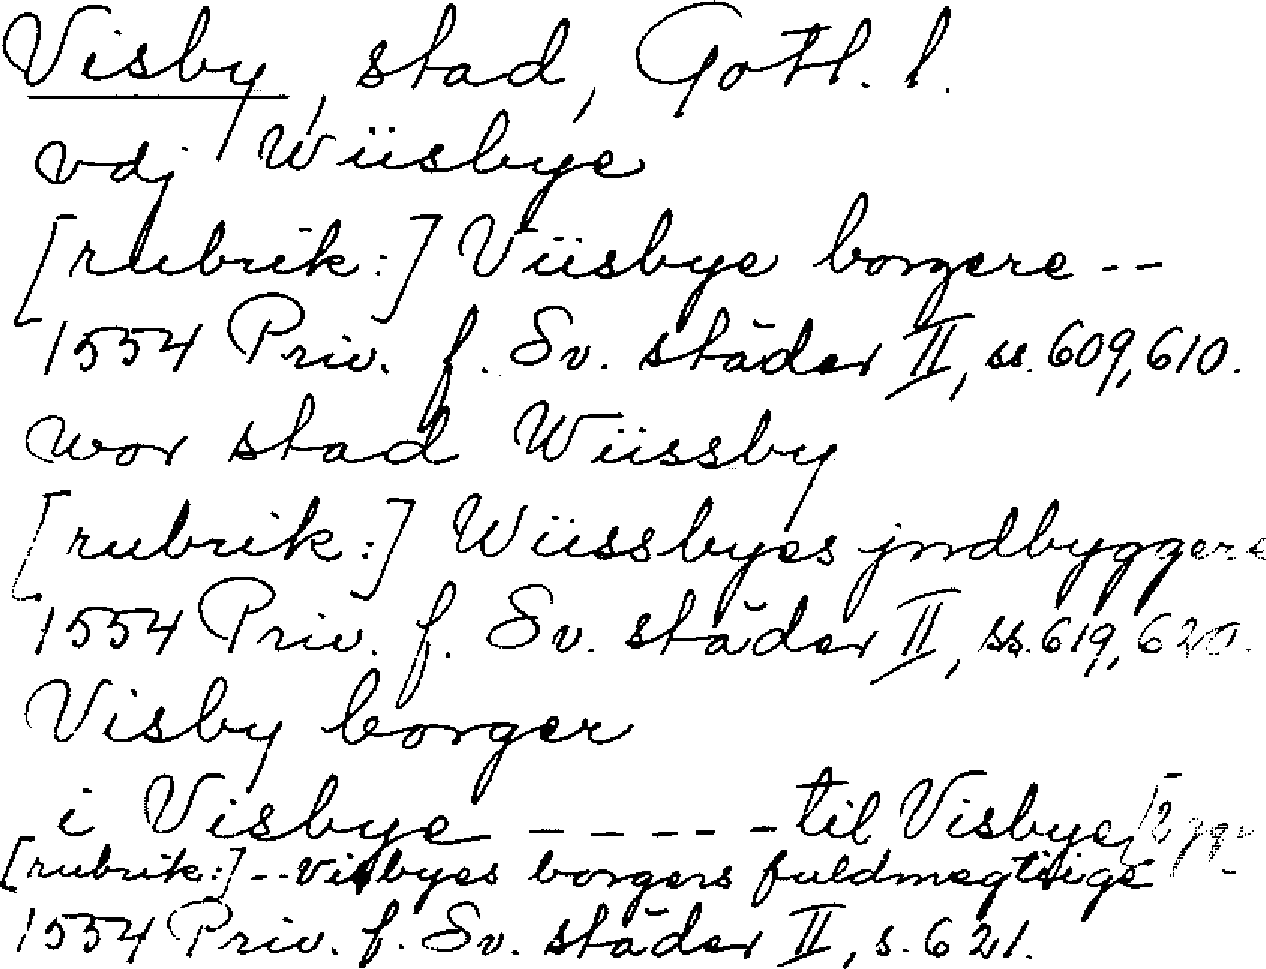 Visby, stad, Gotl. l.
vdj Wiisbye
[rubrik:] Viisbye borgere --
1554 Priv. f. Sv. städer II, ss. 609, 610.
wor stad Wiissby
[rubrik:] Wiissbyes jndbyggere
1554 Priv. f. Sv. städer II, ss. 619, 620.
Visby borger
i Visbye ----- til Visbye [2 ggr
[rubrik:] -- Visbyes borgers fuldmegtiige
1554 Priv. f. Sv. städer II, s. 621.